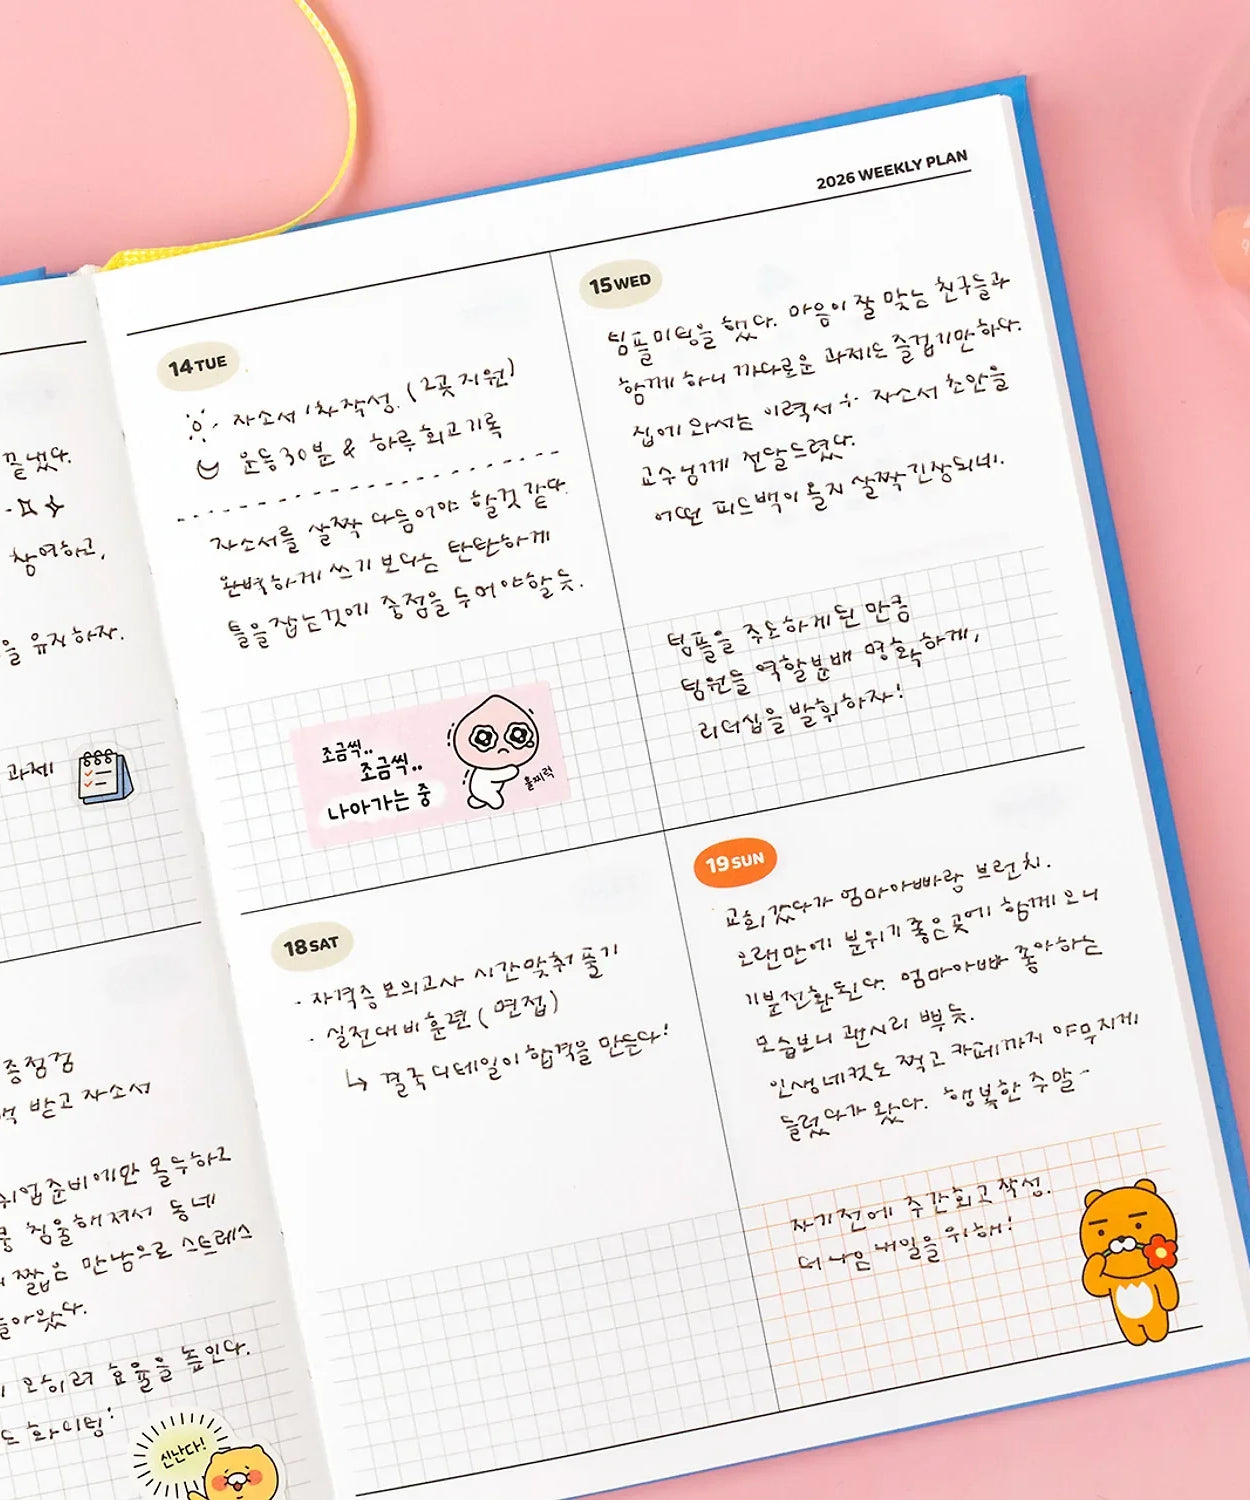 끝냈다.
창여하고,
을 유지하자.
과제
증점검
백 받고 자소서
취업준비에만 몰두하고
침울해져서 동네
짧은 만남으로 스트레스
돌아왔다.
오히려 효율을 높인다.
도 화이팅!
신난다!
2026 WEEKLY PLAN
14 TUE
자소서 1차 작성. (2곳 지원)
운동 30분 & 하루 회고 기록
자소서를 살짝 다듬어야 할것 같다.
완벽하게 쓰기 보다는 탄탄하게
틀을 잡는것에 중점을 두어야할 듯.
조금씩..
조금씩..
나아가는 중
훌찌럭
15 WED
팀플 미팅을 했다. 마음이 잘 맞는 친구들과
함께 하니 까다로운 과제도 즐겁기만 하다.
집에 와서는 이력서 수 자소서 초안을
교수님께 전달드렸다.
어떤 피드백이 올지 살짝 긴장되네.
팀플을 주도하게 된 만큼
팀원들 역할분배 명확하게,
리더십을 발휘하자!
18 SAT
· 자격증 모의고사 시간 맞춰 풀기
· 실전대비 훈련 (면접)
↳ 결국 디테일이 합격을 만든다!
19 SUN
교회 갔다가 엄마아빠랑 브런치.
오랜만에 분위기 좋은곳에 함께 오니
기분전환 된다. 엄마아빠 좋아하는
모습보니 괜시리 뿌듯.
인생네컷도 찍고 카페까지 야무지게
들렀다가 왔다. 행복한 주말~
자기전에 주간회고 작성.
더 나은 내일을 위해!